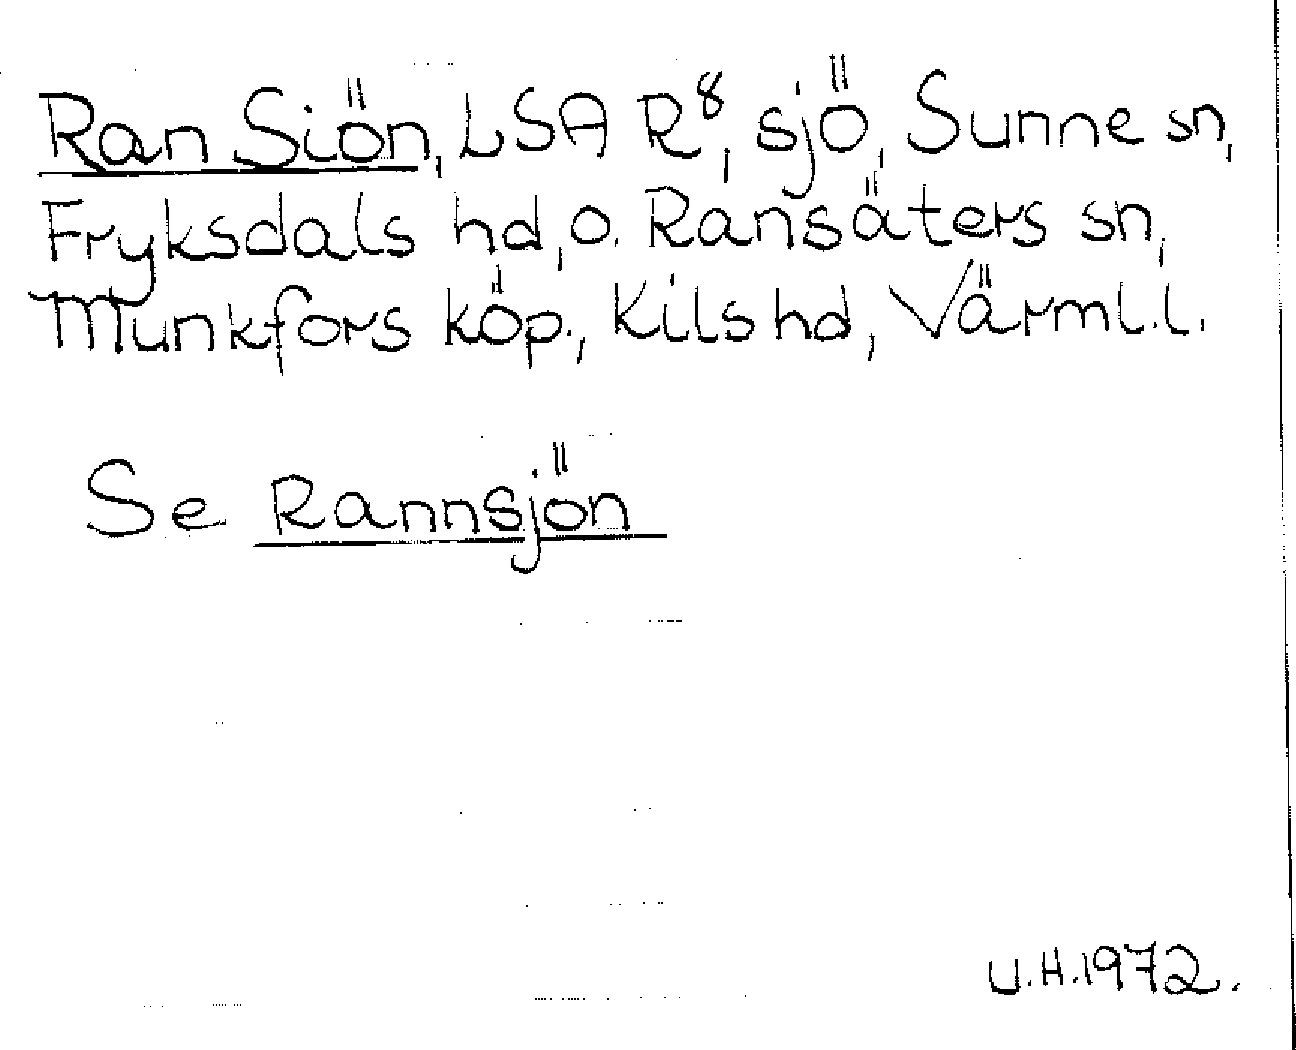 Ran Siön, LSA R⁸, sjö, Sunne sn,
Fryksdals hd, o. Ransäters sn,
Munkfors köp., Kils hd, Värml.l.
Se Rannsjön
U.H.1972.